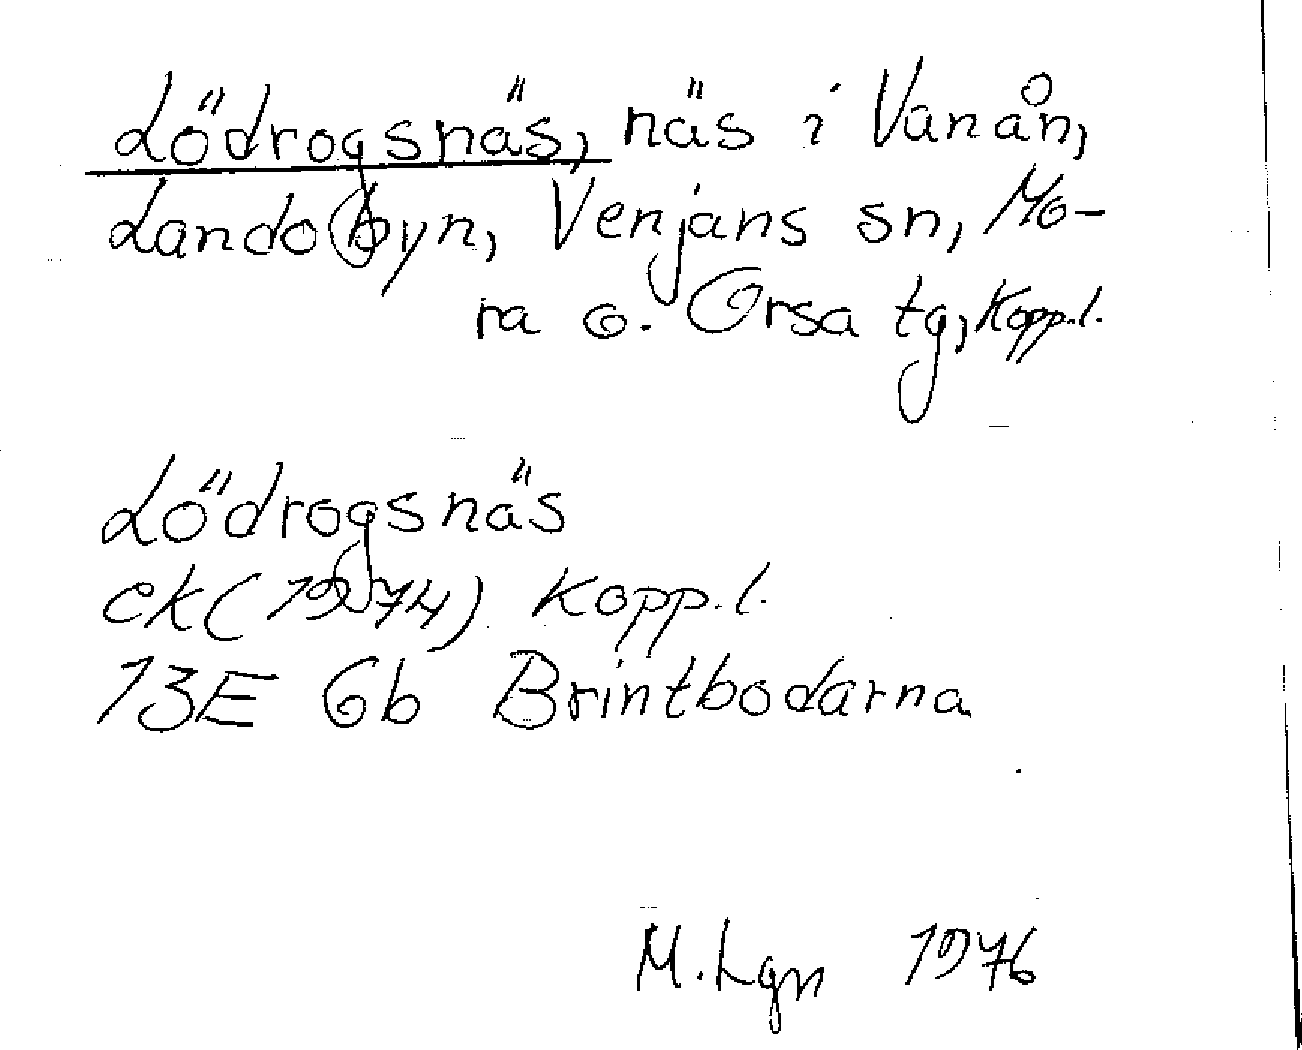 Lödrogsnäs, näs i Vanån,
Landobyn, Venjans sn, Mo-
ra o. Orsa tg, Kopp.l.
Lödrogsnäs
ek (1974) Kopp.l.
13E 6b Brintbodarna
M.Lgn 1976